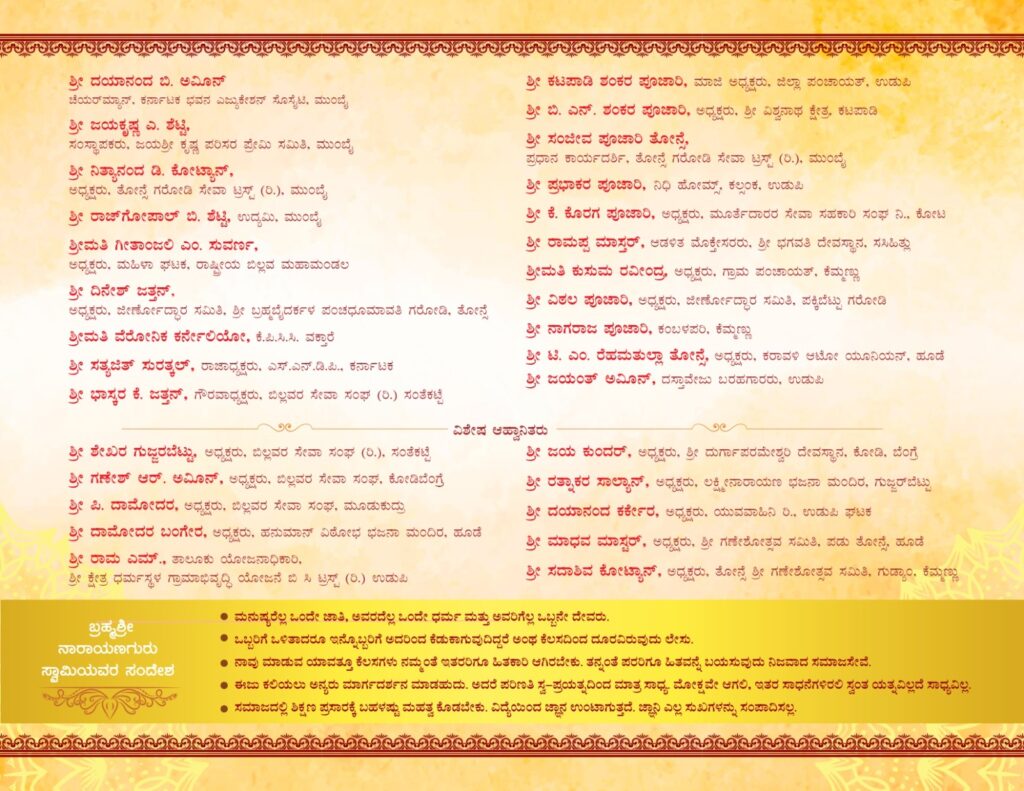 ಶ್ರೀ ದಯಾನಂದ ಬಿ. ಅಮೀನ್
ಚೆಯರ್‌ಮ್ಯಾನ್, ಕರ್ನಾಟಕ ಭವನ ಎಜ್ಯುಕೇಶನ್ ಸೊಸೈಟಿ, ಮುಂಬೈ
ಶ್ರೀ ಜಯಕೃಷ್ಣ ಎ. ಶೆಟ್ಟಿ,
ಸಂಸ್ಥಾಪಕರು, ಜಯಶ್ರೀ ಕೃಷ್ಣ ಪರಿಸರ ಪ್ರೇಮಿ ಸಮಿತಿ, ಮುಂಬೈ
ಶ್ರೀ ನಿತ್ಯಾನಂದ ಡಿ. ಕೋಟ್ಯಾನ್,
ಅಧ್ಯಕ್ಷರು, ತೋನ್ಸೆ ಗರೋಡಿ ಸೇವಾ ಟ್ರಸ್ಟ್ (ರಿ.), ಮುಂಬೈ
ಶ್ರೀ ರಾಜ್‌ಗೋಪಾಲ್ ಬಿ. ಶೆಟ್ಟಿ, ಉದ್ಯಮಿ, ಮುಂಬೈ
ಶ್ರೀಮತಿ ಗೀತಾಂಜಲಿ ಎಂ. ಸುವರ್ಣ,
ಅಧ್ಯಕ್ಷರು, ಮಹಿಳಾ ಘಟಕ, ರಾಷ್ಟ್ರೀಯ ಬಿಲ್ಲವ ಮಹಾಮಂಡಲ
ಶ್ರೀ ದಿನೇಶ್ ಜತ್ತನ್,
ಅಧ್ಯಕ್ಷರು, ಜೀರ್ಣೋದ್ಧಾರ ಸಮಿತಿ, ಶ್ರೀ ಬ್ರಹ್ಮಬೈದರ್ಕಳ ಪಂಚಧೂಮಾವತಿ ಗರೋಡಿ, ತೋನ್ಸೆ
ಶ್ರೀಮತಿ ವೆರೋನಿಕ ಕರ್ನೇಲಿಯೋ, ಕೆ.ಪಿ.ಸಿ.ಸಿ. ವಕ್ತಾರೆ
ಶ್ರೀ ಸತ್ಯಜಿತ್ ಸುರತ್ಕಲ್, ರಾಜಾಧ್ಯಕ್ಷರು, ಎಸ್.ಎನ್.ಡಿ.ಪಿ., ಕರ್ನಾಟಕ
ಶ್ರೀ ಭಾಸ್ಕರ ಕೆ. ಜತ್ತನ್, ಗೌರವಾಧ್ಯಕ್ಷರು, ಬಿಲ್ಲವರ ಸೇವಾ ಸಂಘ (ರಿ.) ಸಂತೆಕಟ್ಟೆ
ಶ್ರೀ ಕಟಪಾಡಿ ಶಂಕರ ಪೂಜಾರಿ, ಮಾಜಿ ಅಧ್ಯಕ್ಷರು, ಜಿಲ್ಲಾ ಪಂಚಾಯತ್, ಉಡುಪಿ
ಶ್ರೀ ಬಿ. ಎನ್. ಶಂಕರ ಪೂಜಾರಿ, ಅಧ್ಯಕ್ಷರು, ಶ್ರೀ ವಿಶ್ವನಾಥ ಕ್ಷೇತ್ರ, ಕಟಪಾಡಿ
ಶ್ರೀ ಸಂಜೀವ ಪೂಜಾರಿ ತೋನ್ಸೆ,
ಪ್ರಧಾನ ಕಾರ್ಯದರ್ಶಿ, ತೋನ್ಸೆ ಗರೋಡಿ ಸೇವಾ ಟ್ರಸ್ಟ್ (ರಿ.), ಮುಂಬೈ
ಶ್ರೀ ಪ್ರಭಾಕರ ಪೂಜಾರಿ, ನಿಧಿ ಹೋಮ್ಸ್, ಕಲ್ಸಂಕ, ಉಡುಪಿ
ಶ್ರೀ ಕೆ. ಕೊರಗ ಪೂಜಾರಿ, ಅಧ್ಯಕ್ಷರು, ಮೂರ್ತೆದಾರರ ಸೇವಾ ಸಹಕಾರಿ ಸಂಘ ನಿ., ಕೋಟ
ಶ್ರೀ ರಾಮಪ್ಪ ಮಾಸ್ತರ್, ಆಡಳಿತ ಮೊಕ್ತೇಸರರು, ಶ್ರೀ ಭಗವತಿ ದೇವಸ್ಥಾನ, ಸಸಿಹಿತ್ಲು
ಶ್ರೀಮತಿ ಕುಸುಮ ರವೀಂದ್ರ, ಅಧ್ಯಕ್ಷರು, ಗ್ರಾಮ ಪಂಚಾಯತ್, ಕೆಮ್ಮಣ್ಣು
ಶ್ರೀ ವಿಠಲ ಪೂಜಾರಿ, ಅಧ್ಯಕ್ಷರು, ಜೀರ್ಣೋದ್ಧಾರ ಸಮಿತಿ, ಪಕ್ಕಿಬೆಟ್ಟು ಗರೋಡಿ
ಶ್ರೀ ನಾಗರಾಜ ಪೂಜಾರಿ, ಕಂಬಳಪರಿ, ಕೆಮ್ಮಣ್ಣು
ಶ್ರೀ ಟಿ. ಎಂ. ರೆಹಮತುಲ್ಲಾ ತೋನ್ಸೆ, ಅಧ್ಯಕ್ಷರು, ಕರಾವಳಿ ಆಟೋ ಯೂನಿಯನ್, ಹೂಡೆ
ಶ್ರೀ ಜಯಂತ್ ಅಮೀನ್, ದಸ್ತಾವೇಜು ಬರಹಗಾರರು, ಉಡುಪಿ
ವಿಶೇಷ ಆಹ್ವಾನಿತರು
ಶ್ರೀ ಶೇಖರ ಗುಜ್ಜರಬೆಟ್ಟು, ಅಧ್ಯಕ್ಷರು, ಬಿಲ್ಲವರ ಸೇವಾ ಸಂಘ (ರಿ.), ಸಂತೆಕಟ್ಟೆ
ಶ್ರೀ ಗಣೇಶ್ ಆರ್. ಅಮೀನ್, ಅಧ್ಯಕ್ಷರು, ಬಿಲ್ಲವರ ಸೇವಾ ಸಂಘ, ಕೋಡಿಬೆಂಗ್ರೆ
ಶ್ರೀ ಪಿ. ದಾಮೋದರ, ಅಧ್ಯಕ್ಷರು, ಬಿಲ್ಲವರ ಸೇವಾ ಸಂಘ, ಮೂಡುಕುದ್ರು
ಶ್ರೀ ದಾಮೋದರ ಬಂಗೇರ, ಅಧ್ಯಕ್ಷರು, ಹನುಮಾನ್ ವಿಠೋಭ ಭಜನಾ ಮಂದಿರ, ಹೂಡೆ
ಶ್ರೀ ರಾಮ ಎಮ್., ತಾಲೂಕು ಯೋಜನಾಧಿಕಾರಿ,
ಶ್ರೀ ಕ್ಷೇತ್ರ ಧರ್ಮಸ್ಥಳ ಗ್ರಾಮಾಭಿವೃದ್ಧಿ ಯೋಜನೆ ಬಿ ಸಿ ಟ್ರಸ್ಟ್ (ರಿ.) ಉಡುಪಿ
ಶ್ರೀ ಜಯ ಕುಂದರ್, ಅಧ್ಯಕ್ಷರು, ಶ್ರೀ ದುರ್ಗಾಪರಮೇಶ್ವರಿ ದೇವಸ್ಥಾನ, ಕೋಡಿ, ಬೆಂಗ್ರೆ
ಶ್ರೀ ರತ್ನಾಕರ ಸಾಲ್ಯಾನ್, ಅಧ್ಯಕ್ಷರು, ಲಕ್ಷ್ಮೀನಾರಾಯಣ ಭಜನಾ ಮಂದಿರ, ಗುಜ್ಜರ್‌ಬೆಟ್ಟು
ಶ್ರೀ ದಯಾನಂದ ಕರ್ಕೇರ, ಅಧ್ಯಕ್ಷರು, ಯುವವಾಹಿನಿ ರಿ., ಉಡುಪಿ ಘಟಕ
ಶ್ರೀ ಮಾಧವ ಮಾಸ್ಟರ್, ಅಧ್ಯಕ್ಷರು, ಶ್ರೀ ಗಣೇಶೋತ್ಸವ ಸಮಿತಿ, ಪಡು ತೋನ್ಸೆ, ಹೂಡೆ
ಶ್ರೀ ಸದಾಶಿವ ಕೋಟ್ಯಾನ್, ಅಧ್ಯಕ್ಷರು, ತೋನ್ಸೆ ಶ್ರೀ ಗಣೇಶೋತ್ಸವ ಸಮಿತಿ, ಗುಡ್ಯಾಂ, ಕೆಮ್ಮಣ್ಣು
ಬ್ರಹ್ಮಶ್ರೀ
ನಾರಾಯಣಗುರು
ಸ್ವಾಮಿಯವರ ಸಂದೇಶ
• ಮನುಷ್ಯರೆಲ್ಲ ಒಂದೇ ಜಾತಿ, ಅವರದೆಲ್ಲ ಒಂದೇ ಧರ್ಮ ಮತ್ತು ಅವರಿಗೆಲ್ಲ ಒಬ್ಬನೇ ದೇವರು.
• ಒಬ್ಬರಿಗೆ ಒಳಿತಾದರೂ ಇನ್ನೊಬ್ಬರಿಗೆ ಅದರಿಂದ ಕೆಡುಕಾಗುವುದಿದ್ದರೆ ಅಂಥ ಕೆಲಸದಿಂದ ದೂರವಿರುವುದು ಲೇಸು.
• ನಾವು ಮಾಡುವ ಯಾವತ್ತೂ ಕೆಲಸಗಳು ನಮ್ಮಂತೆ ಇತರರಿಗೂ ಹಿತಕಾರಿ ಆಗಿರಬೇಕು. ತನ್ನಂತೆ ಪರರಿಗೂ ಹಿತವನ್ನೆ ಬಯಸುವುದು ನಿಜವಾದ ಸಮಾಜಸೇವೆ.
• ಈಜು ಕಲಿಯಲು ಅನ್ಯರು ಮಾರ್ಗದರ್ಶನ ಮಾಡಬಹುದು. ಆದರೆ ಪರಿಣತಿ ಸ್ವ-ಪ್ರಯತ್ನದಿಂದ ಮಾತ್ರ ಸಾಧ್ಯ. ಮೋಕ್ಷವೇ ಆಗಲಿ, ಇತರ ಸಾಧನೆಗಳಿರಲಿ ಸ್ವಂತ ಯತ್ನವಿಲ್ಲದೆ ಸಾಧ್ಯವಿಲ್ಲ.
• ಸಮಾಜದಲ್ಲಿ ಶಿಕ್ಷಣ ಪ್ರಸಾರಕ್ಕೆ ಬಹಳಷ್ಟು ಮಹತ್ವ ಕೊಡಬೇಕು. ವಿದ್ಯೆಯಿಂದ ಜ್ಞಾನ ಉಂಟಾಗುತ್ತದೆ. ಜ್ಞಾನಿ ಎಲ್ಲ ಸುಖಗಳನ್ನು ಸಂಪಾದಿಸಲ್ಲ.